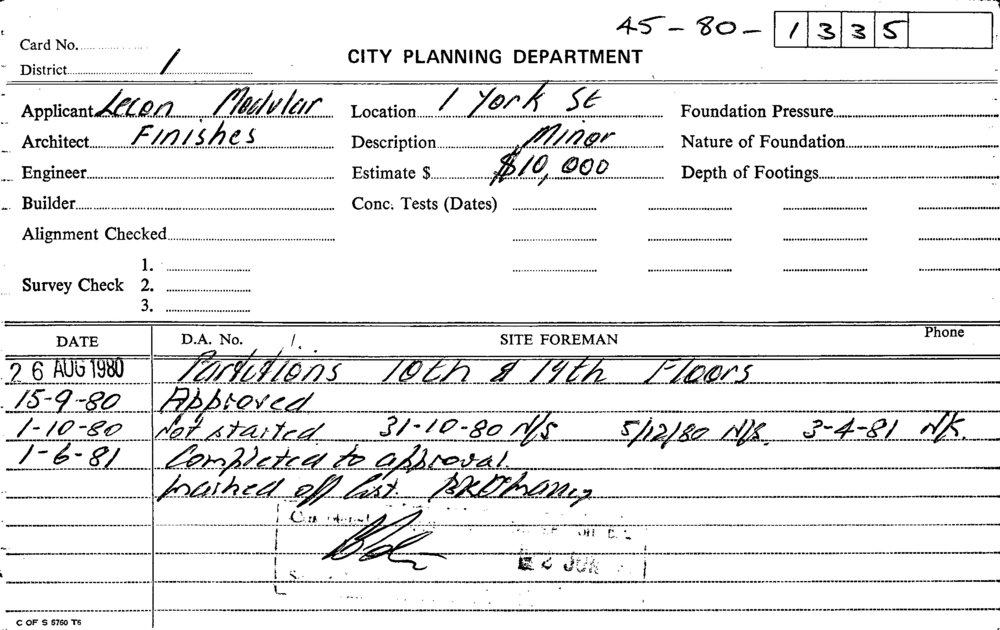 45-80-1335
Card No.
District 1
CITY PLANNING DEPARTMENT
Applicant Lecon Modular Location 1 York St Foundation Pressure
Architect Finishes Description Minor Nature of Foundation
Engineer Estimate $ $10,000 Depth of Footings
Builder Conc. Tests (Dates)
Alignment Checked
1.
Survey Check 2.
3.
DATE D.A. No. 1. SITE FOREMAN Phone
26 AUG 1980 Partitions 10th & 14th Floors
15-9-80 Approved
1-10-80 Not started 31-10-80 N/S 5/12/80 N/S. 3-4-81 N/K.
1-6-81 Completed to approval.
marked off list.
JUN
C OF S 5760 T5